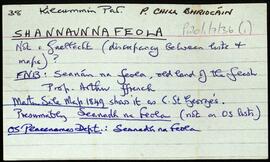 38 Kilcummin Par. P. CHILL CHUIMÍN
SHANNAVNNAFEOLA
Not a Gaeltacht (discrepancy between lists &
maps)?
FNB: Seanán na feola, old land of the flesh
Prop. Arthur ffrench
Martin Sale Map 1849 shows it as C. St George's.
Presumably Seanadh na Feola (not on OS lists)
OS Placenames Dept.: Seanadh na Feola